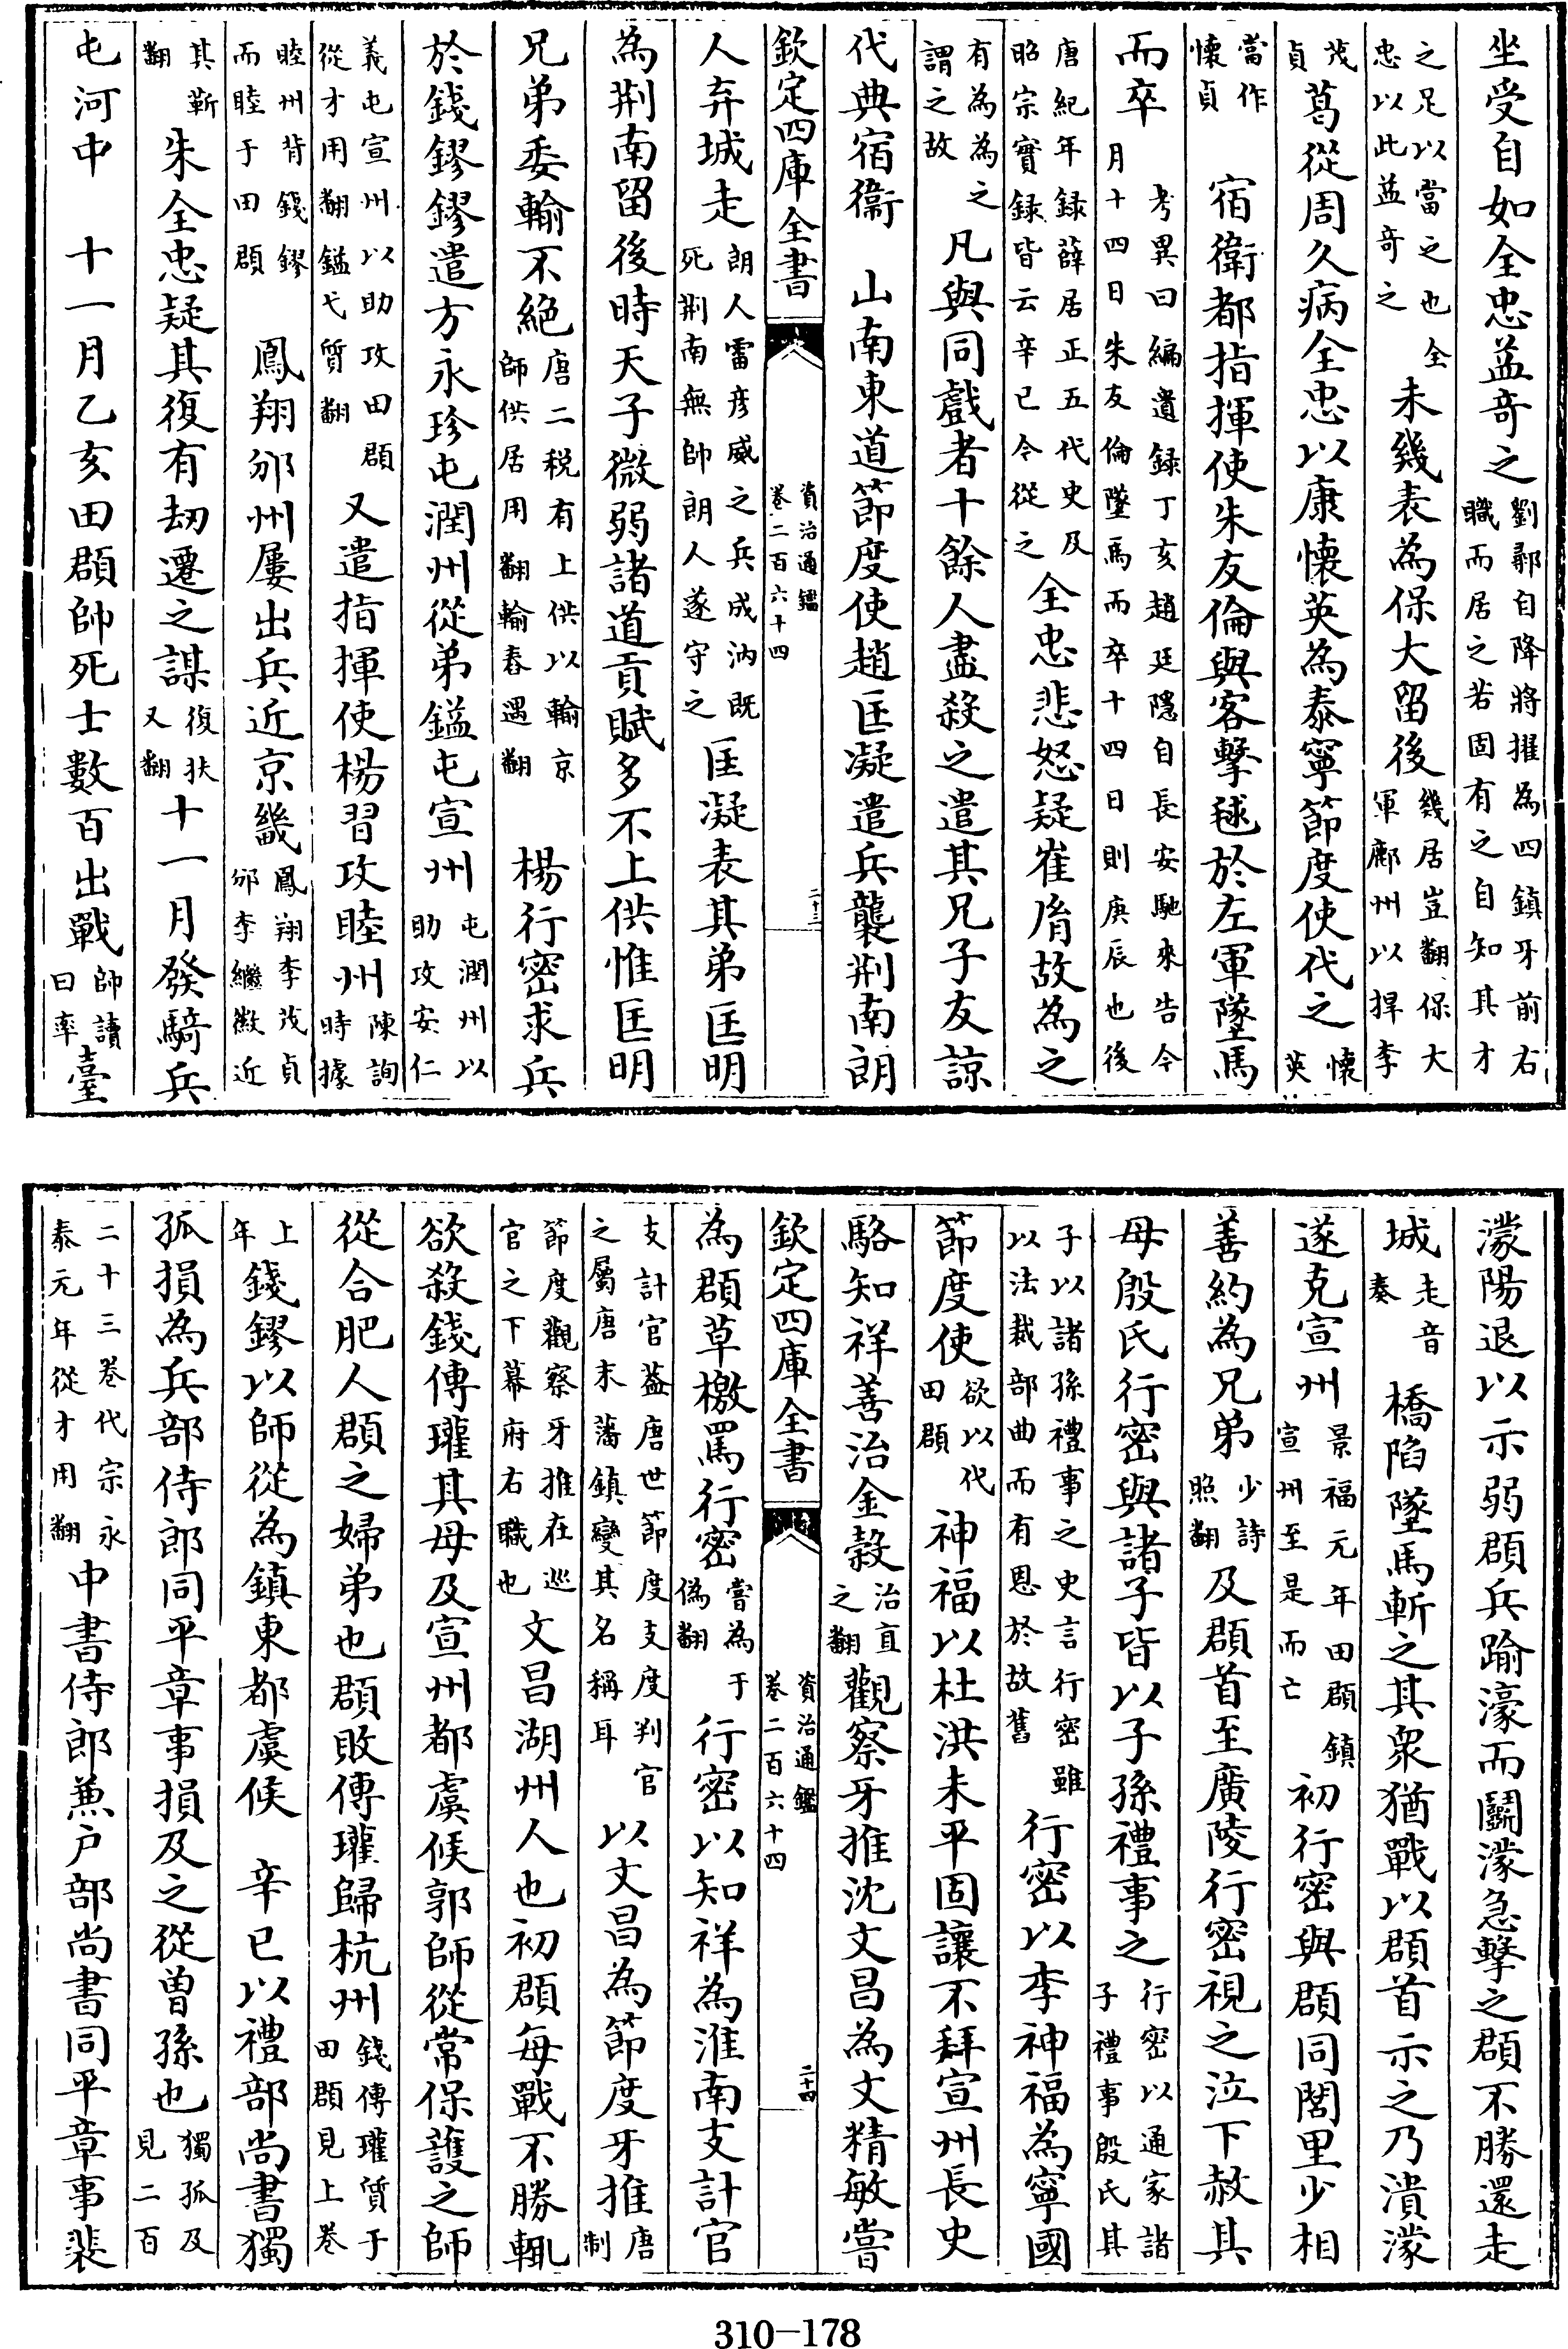 坐受自如全忠益奇之劉鄩自降將擢為四鎮牙前右職而居之若固有之自知其才
之足以當之也全忠以此益奇之未幾表為保大留後幾居豈翻保大軍鄜州以捍李
茂貞葛從周久病全忠以康懷英為泰寧節度使代之懷英
當作懷貞 宿衛都指揮使朱友倫與客擊毬於左軍墜馬
而卒考異曰編遺録丁亥趙廷隱自長安馳來告今月十四日朱友倫墜馬而卒十四日則庚辰也後
唐紀年録薛居正五代史及昭宗實録皆云辛巳今從之全忠悲怒疑崔𦙍故為之
有為為之謂之故凡與同戲者十餘人盡殺之遣其兄子友諒
代典宿衞 山南東道節度使趙匡凝遣兵襲荆南朗
欽定四庫全書 資治通鑑卷二百六十四 二十三
人弃城走朗人雷彦威之兵成汭既死荆南無帥朗人遂守之匡凝表其弟匡明
為荆南留後時天子微弱諸道貢賦多不上供惟匡明
兄弟委輸不絶唐二税有上供以輸京師供居用翻輸舂遇翻 楊行密求兵
於錢鏐鏐遣方永珍屯潤州從弟鎰屯宣州屯潤州以助攻安仁
義屯宣州以助攻田頵從才用翻鎰弋質翻又遣指揮使楊習攻睦州陳詢時據
睦州背錢鏐而睦于田頵 鳳翔邠州屢出兵近京畿鳳翔李茂貞邠李繼徽近
其靳翻朱全忠疑其復有刼遷之謀復扶又翻十一月發騎兵
屯河中 十一月乙亥田頵帥死士數百出戰帥讀曰率臺
濛陽退以示弱頵兵踰濠而鬭濛急擊之頵不勝還走
城走音奏 橋陷墜馬斬之其衆猶戰以頵首示之乃潰濛
遂克宣州景福元年田頵鎮宣州至是而亡 初行密與頵同閭里少相
善約為兄弟少詩照翻及頵首至廣陵行密視之泣下赦其
母殷氏行密與諸子皆以子孫禮事之行密以通家諸子禮事殷氏其
子以諸孫禮事之史言行密雖以法裁部曲而有恩於故舊 行密以李神福為寧國
節度使欲以代田頵 神福以杜洪未平固讓不拜宣州長史
駱知祥善治金穀治直之翻觀察牙推沈文昌為文精敏嘗
欽定四庫全書 資治通鑑卷二百六十四 二十四
為頵草檄罵行密嘗為于偽翻 行密以知祥為淮南支計官
支計官葢唐世節度支度判官之屬唐末藩鎮變其名稱耳以文昌為節度牙推唐制
節度觀察牙推在巡官之下幕府右職也文昌湖州人也初頵每戰不勝輒
欲殺錢傳瓘其母及宣州都虞候郭師從常保護之師
從合肥人頵之婦弟也頵敗傳瓘歸杭州錢傳瓘質于田頵見上卷
上年錢鏐以師從為鎮東都虞候 辛巳以禮部尚書獨
孤損為兵部侍郎同平章事損及之從曾孫也獨孤及見二百
二十三卷代宗永泰元年從才用翻中書侍郎兼户部尚書同平章事裴
310-178